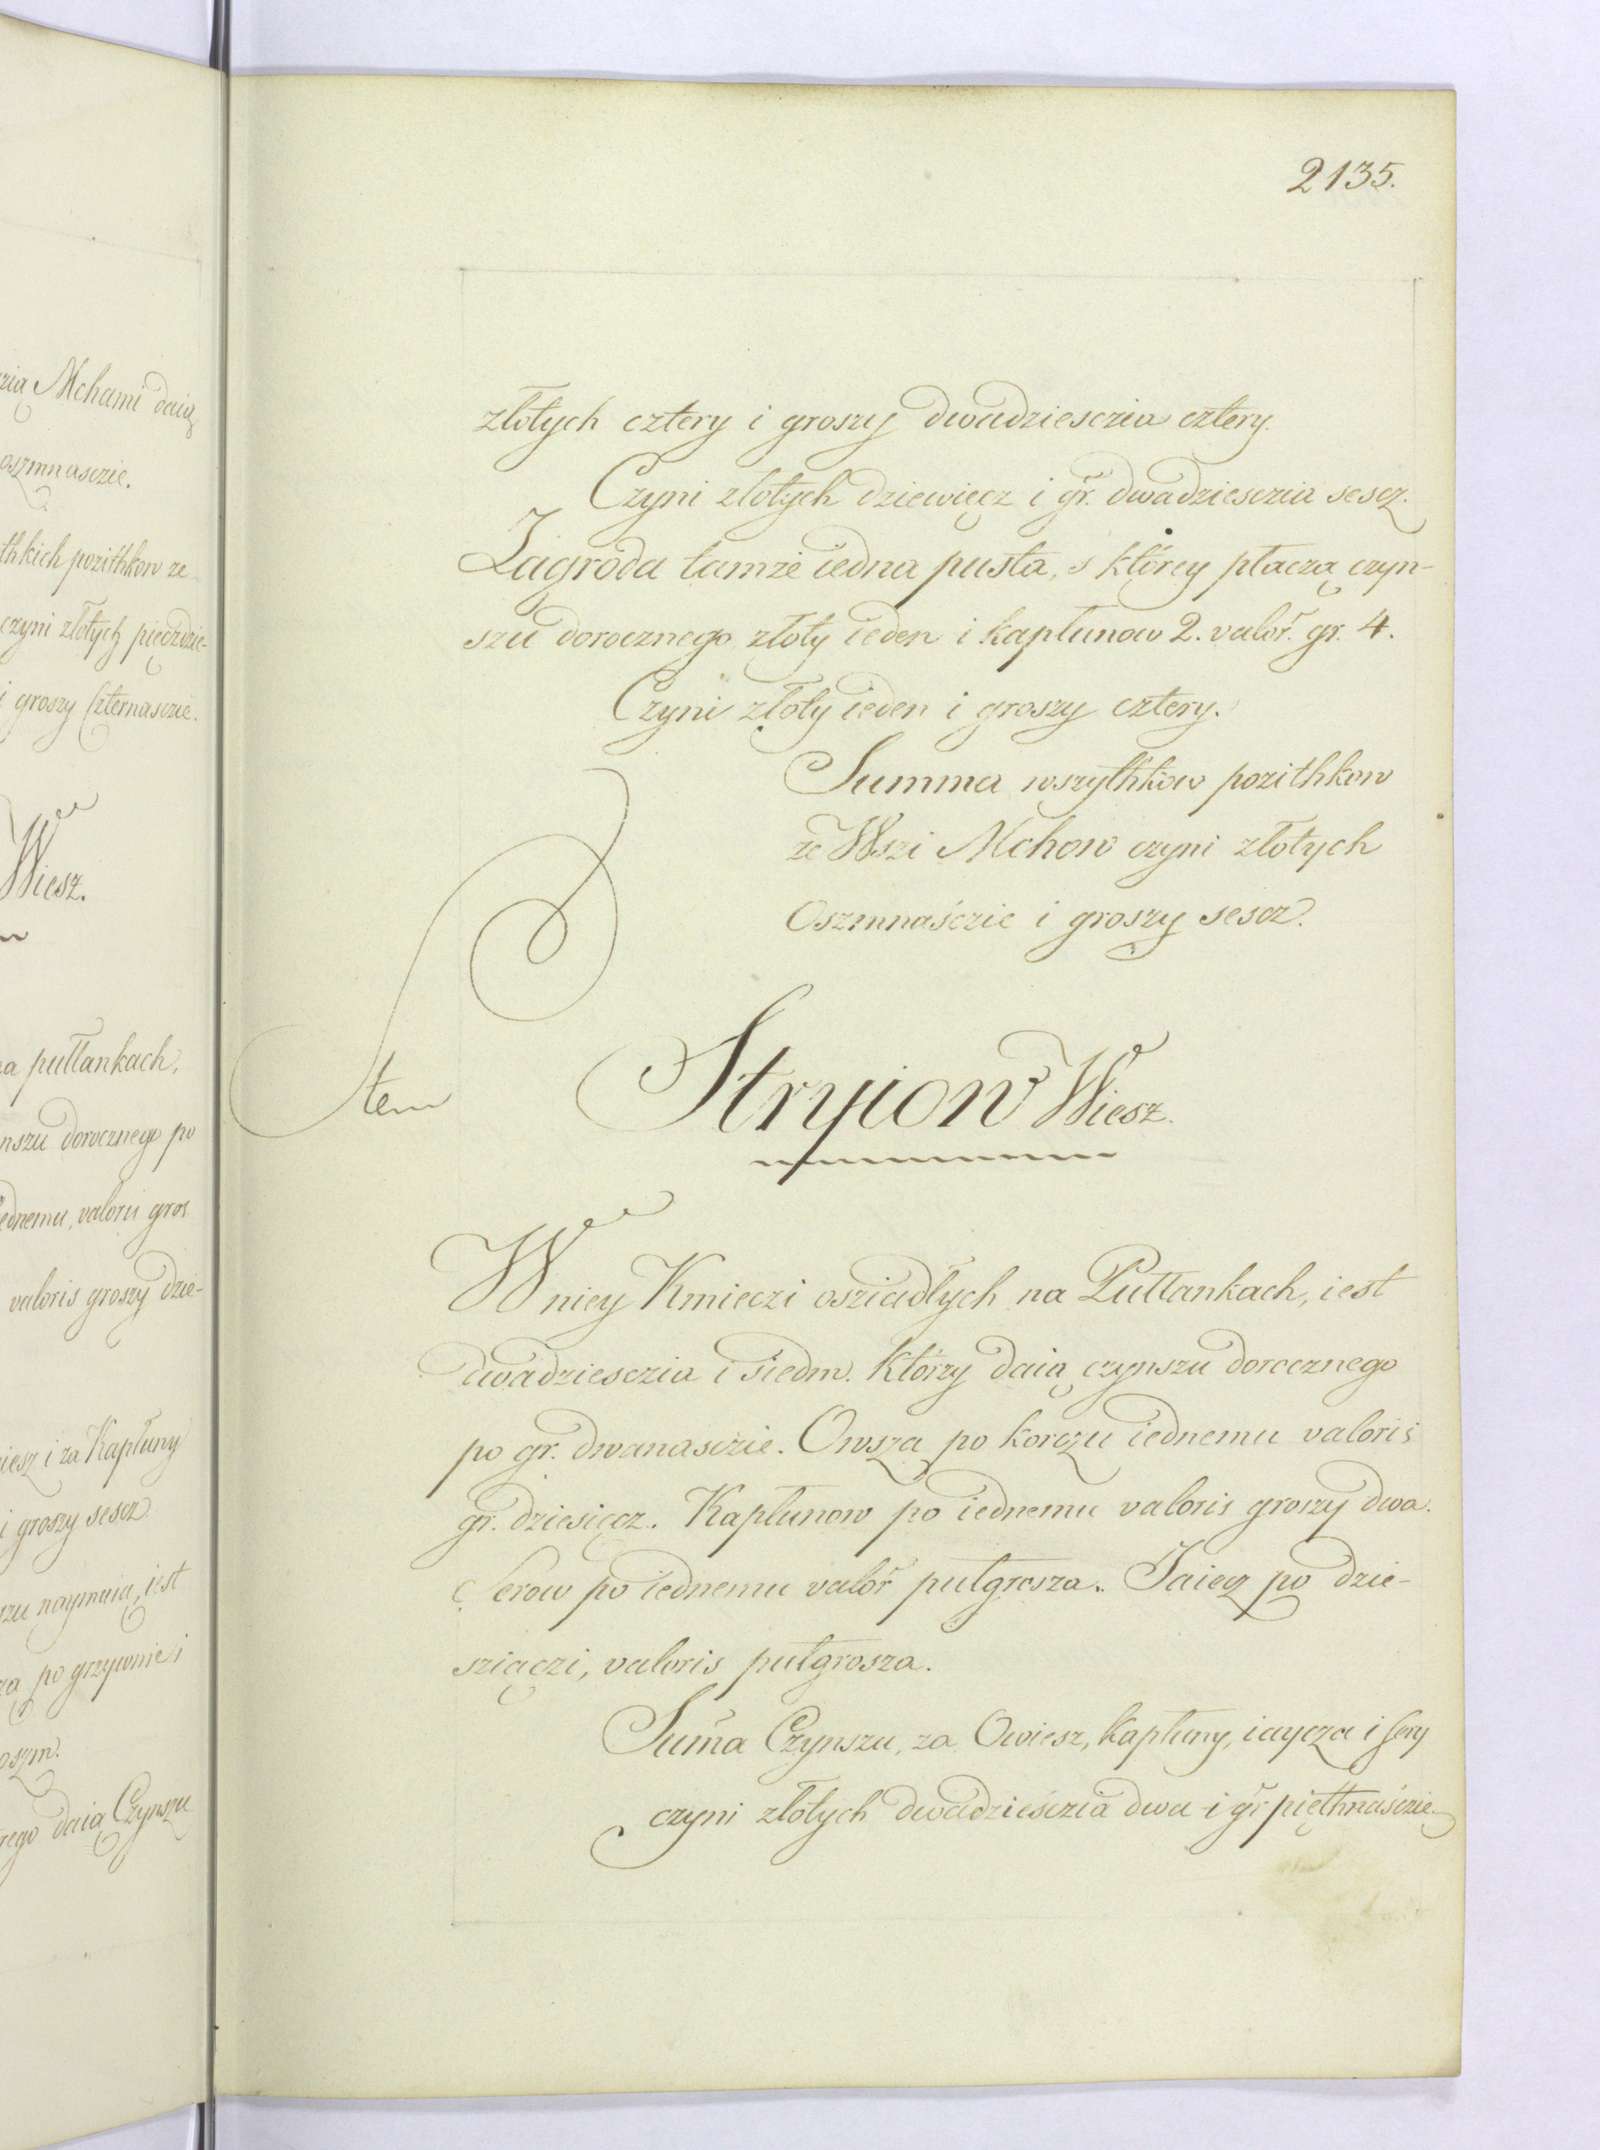 2135.
zią Mchami daią
oszmnasczie.
thkich pozithkow ze
czyni złotych piędzdzie-
i groszy Czternasczie.
Wiesz.
na pułłankach,
nszu dorocznego po
iednemu, valoris gros
valoris groszy dzie-
iesz i za Kapłuny
i groszy sescz
szu naymuią, iest
za po grzywnie i
oszm.
rego daią Czynszu
złotych cztery i groszy dwadziesczia cztery.
Czyni złotych dziewięcz i gr. dwadziesczia sescz.
Zagroda tamże iedna pusta, s którey płaczą czyn-
szu dorocznego złoty ieden i kapłunow 2. valor. gr. 4.
Czyni złoty ieden i groszy cztery.
Summa wszythkow pozithkow
ze Wszi Mchow czyni złotych
Oszmnaśczie i groszy sescz.
Item Stryiow Wiesz.
W niey Kmieczi osziadłych na Pułłankach, iest
dwadziesczia i siedm. Którzy daią czynszu dorocznego
po gr. dwanasczie. Owsza po korczu iednemu valoris
gr. dziesięcz. Kapłunow po iednemu valoris groszy dwa.
Serow po iednemu valor pułgrosza. Iaiecz po dzie-
sziączi, valoris pułgrosza.
Suma Czynszu, za Owiesz, kapłuny, iaycza i sery
czyni złotych dwadzieśczia dwa i gr pięthnaśczie.